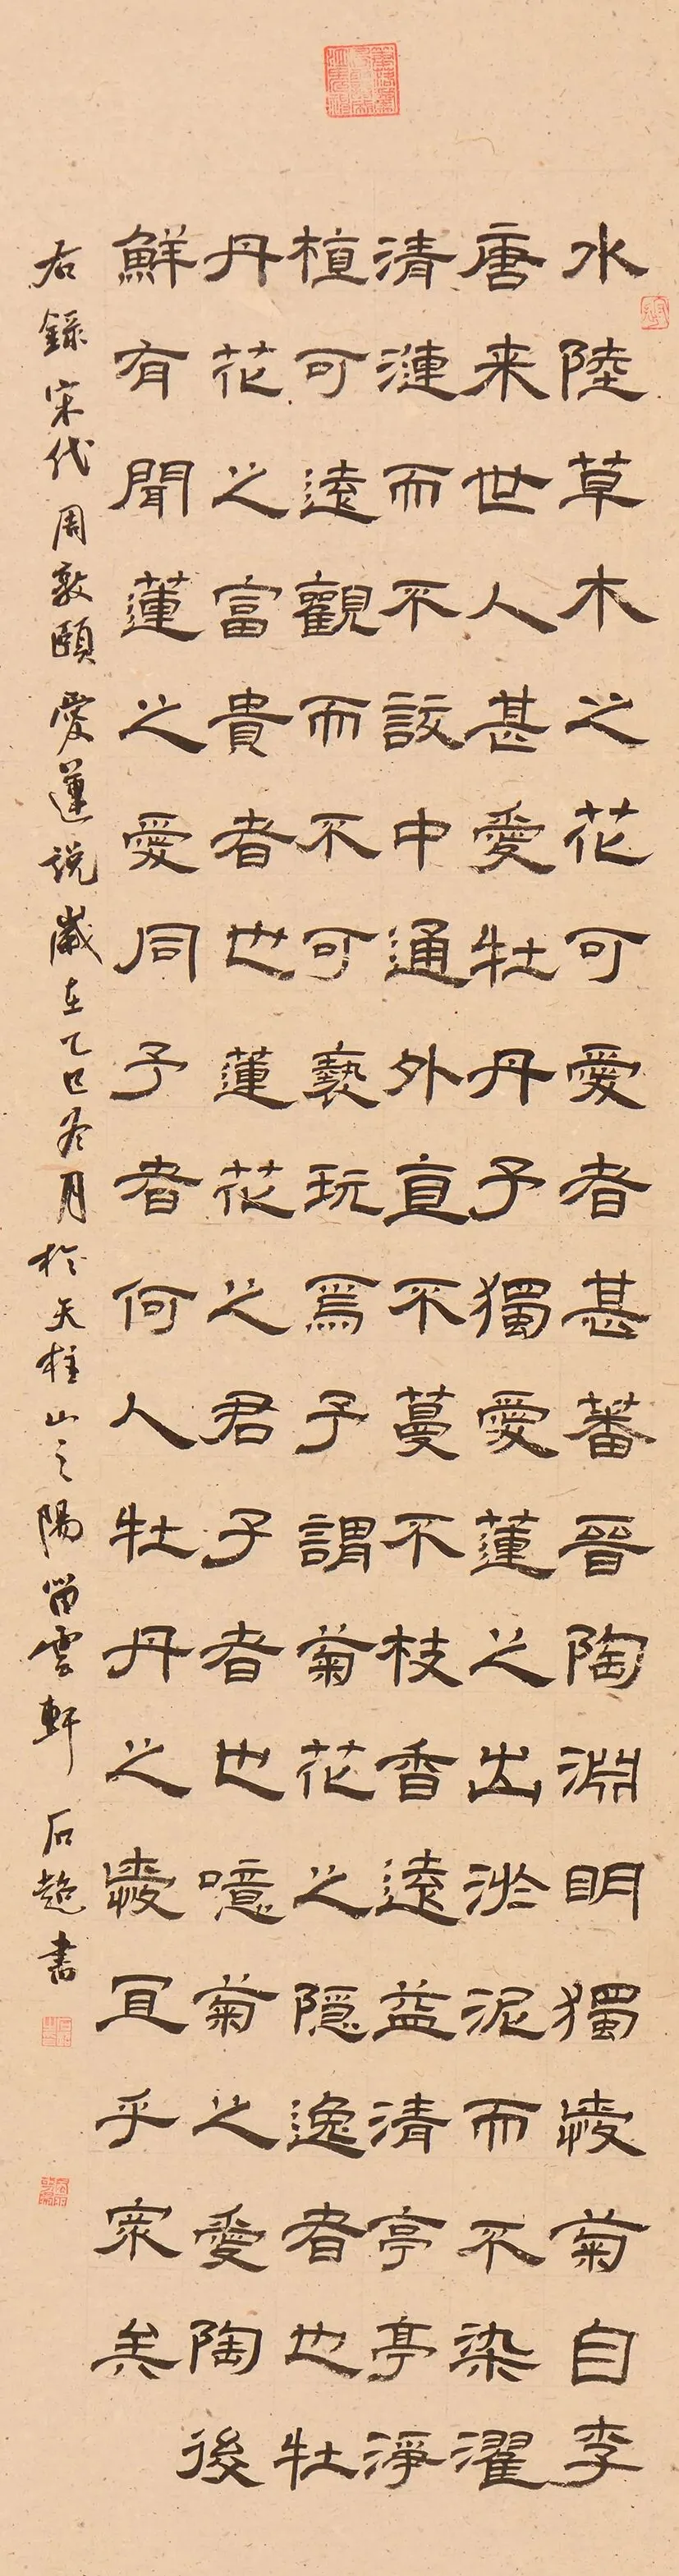 水陸草木之花可愛者甚蕃晉陶淵明獨愛菊自李
唐来世人甚愛牡丹予獨愛蓮之出淤泥而不染濯
清漣而不中通外直不蔓不枝香遠益清亭亭淨
植可遠觀而不可褻玩焉予謂菊花之隱逸者也牡
丹花之富貴者也蓮花之君子者也噫菊之愛陶後
鮮有聞蓮之愛同予者何人牡丹之愛宜乎衆矣
右錄宋代周敦頤愛蓮説歲在乙巳冬月於天柱山之陽留雲軒石超書